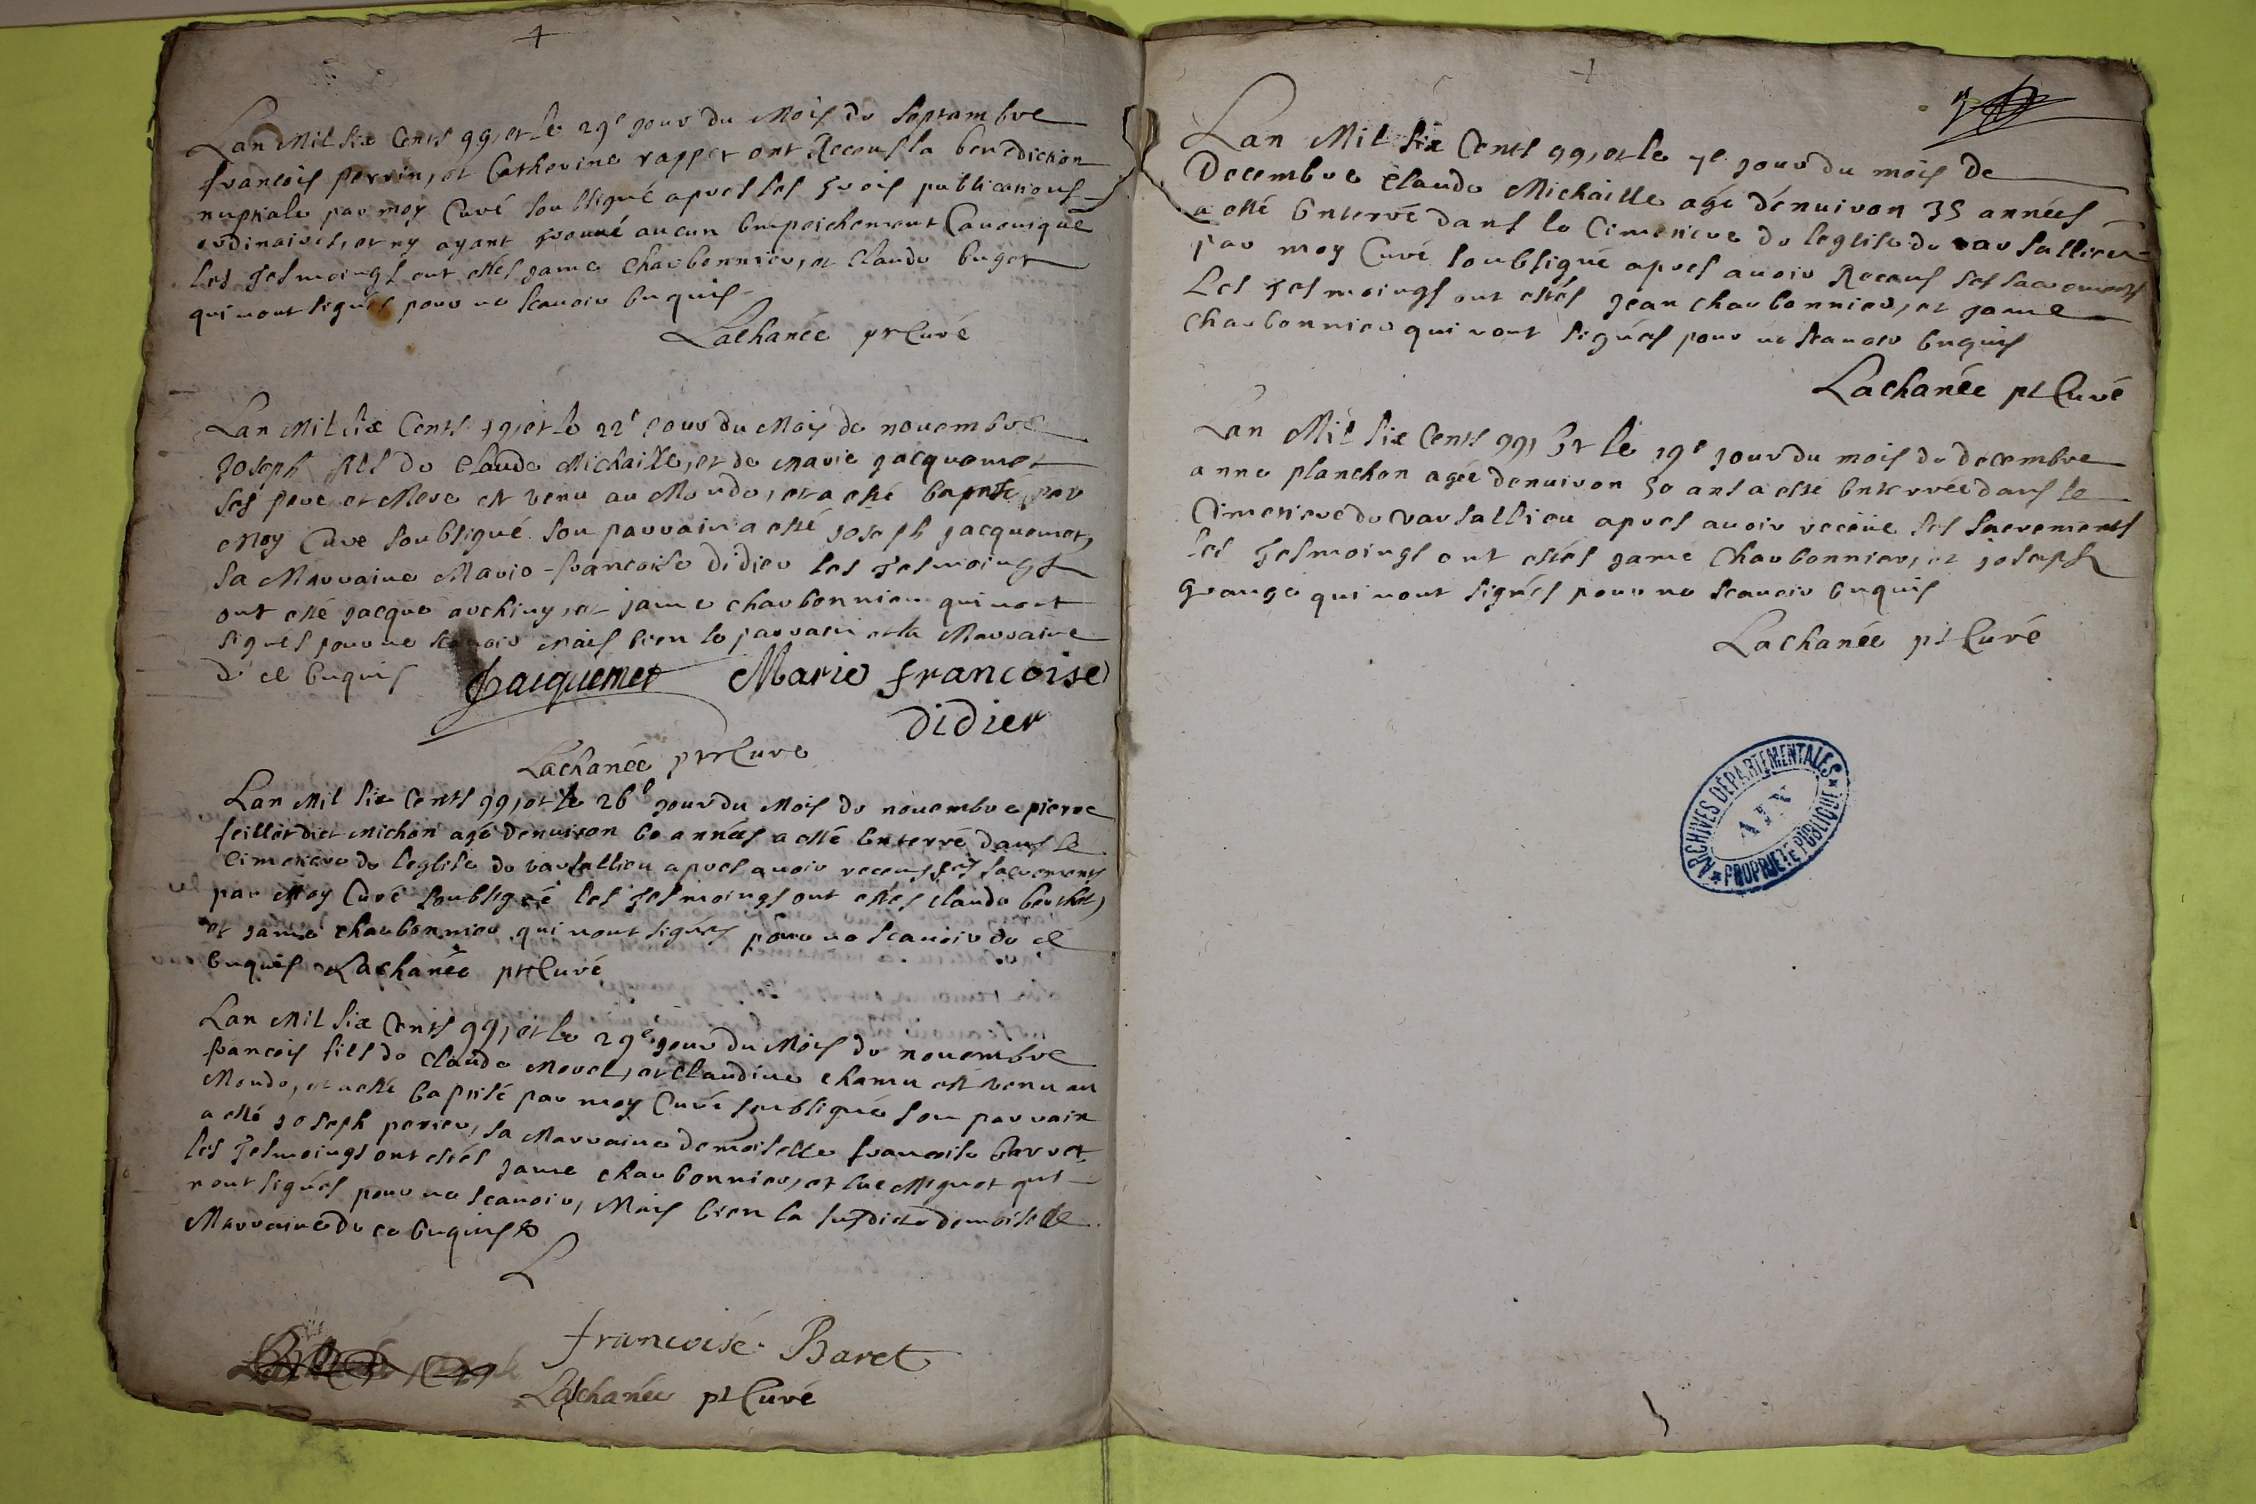 Lan Mil Six Cents 99, et le 29e jour du Mois de Septambre
francois perrin, et Catherine rappet ont Receus la benediction
nuptiale par moy Curé soubsigné apres les trois publications
ordinaires, et ny ayant trouué aucun Empeichement Canonique
les tesmoings ont estés jame charbonnier, et claude buget
qui nont signés pour ne scauoir Enquis
Lachanée ptr Curé
Lan Mil six Cents 99, et le 22e jour du Mois de nouembre
Joseph fils de Claude Michaille, et de Marie jacquemet
ses pere et Mere est venu au Monde, et a esté baptisé par
Moy Curé soubsigné son parrain a esté joseph jacquemet,
sa Marraine Marie-francoise didier les tesmoings
ont esté jacque archiny, et jame charbonnier qui nont
signés pour ne scauoir Mais bien le parrain et la Marraine
de ce Enquis Jacquemet Marie francoise
didier
Lachanée ptr Curé
Lan Mil six Cents 99, et le 26e jour du Mois de nouembre pierre
feillet dict michon agé denuiron 60 années a esté Enterré dans le
Cimetiere de leglise de vaux sallieu apres auoir receus ses sacrements
par Moy Curé soubsigné les tesmoings ont estés claude berchet,
et jame charbonnier qui nont signés pour ne scauoir de ce
Enquis Lachanée ptr Curé
Lan Mil six Cents 99, et le 29e jour du Mois de nouembre
francois fils de Claude Morel, et Claudine chanu est venu au
Monde, et a esté baptisé par moy Curé soubsigné son parrain
a esté joseph perier, sa Marraine demoiselle francoise barret
les tesmoings ont estés jame charbonnier, et luc Miguet qui
nont signés pour ne scauoir, Mais bien la susdicte demoiselle
Marraine de ce Enquis
francoise Baret
Lachanée pt Curé
Lan Mil Six Cents 99, et le 7e jour du mois de
Decembre Claude Michaille agé dénuiron 35 années
a esté Enterré dans le Cimetiere de leglise de vau sallieu
par moy Curé soubsigné apres auoir Receus ses sacrements
Les tesmoings ont estés jean charbonnier, et jame
charbonnier qui nont signés pour ne scauoir Enquis
Lachanée pt Curé
Lan Mil Six Cents 99, Et le 19e jour du mois de decembre
anne planchon agée denuiron 50 ans a esté Enterrée dans le
Cimetiere de vau sallieu apres auoir receüe ses sacrements
les tesmoings ont estés jame charbonnier, et joseph
grange qui nont signés pour ne scauoir Enquis
Lachanée pt Curé
ARCHIVES DÉPARTEMENTALES
AIN
PROPRIÉTÉ PUBLIQUE